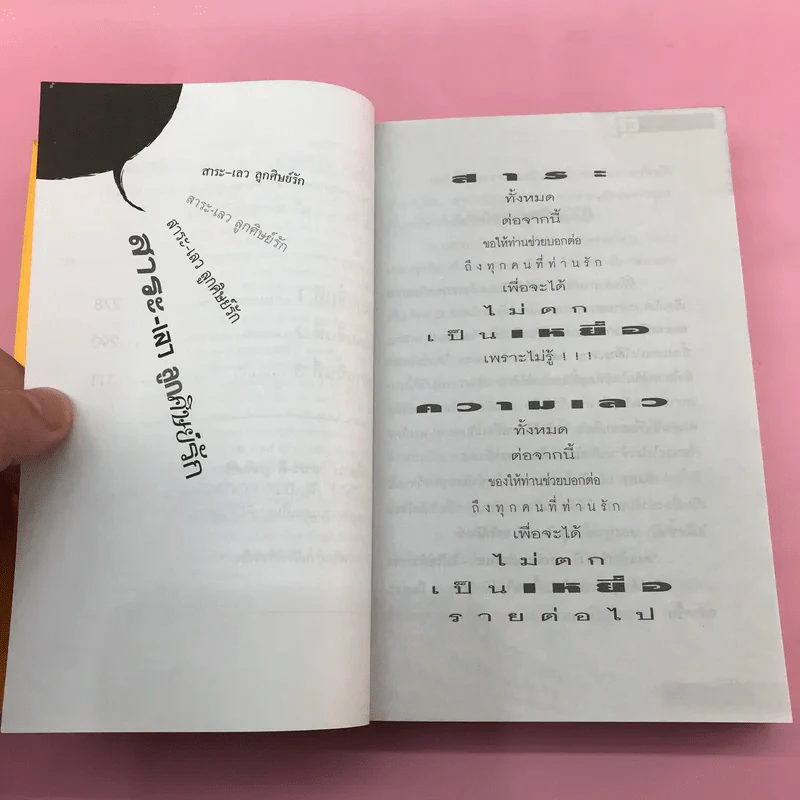 สาระ-เลว ลูกศิษย์รัก
สาระ-เลว ลูกศิษย์รัก
สาระ-เลว ลูกศิษย์รัก
สาระ-เลว ลูกศิษย์รัก
สาระ
ทั้งหมด
ต่อจากนี้
ขอให้ท่านช่วยบอกต่อ
ถึงทุกคนที่ท่านรัก
เพื่อจะได้
ไม่ตก
เป็นเหยื่อ
เพราะไม่รู้!!!
ความเลว
ทั้งหมด
ต่อจากนี้
ของให้ท่านช่วยบอกต่อ
ถึงทุกคนที่ท่านรัก
เพื่อจะได้
ไม่ตก
เป็นเหยื่อ
รายต่อไป